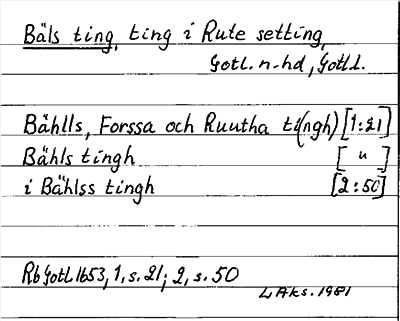 Bäls ting, ting i Rute setting,
Gotl. n. hd, Gotl. l.
Bählls, Forssa och Ruutha ti(ngh) [1:21]
Bähls tingh [ " ]
i Bählss tingh [2:50]
Rb Gotl 1653, 1, s. 21; 2, s. 50
L Aks. 1981